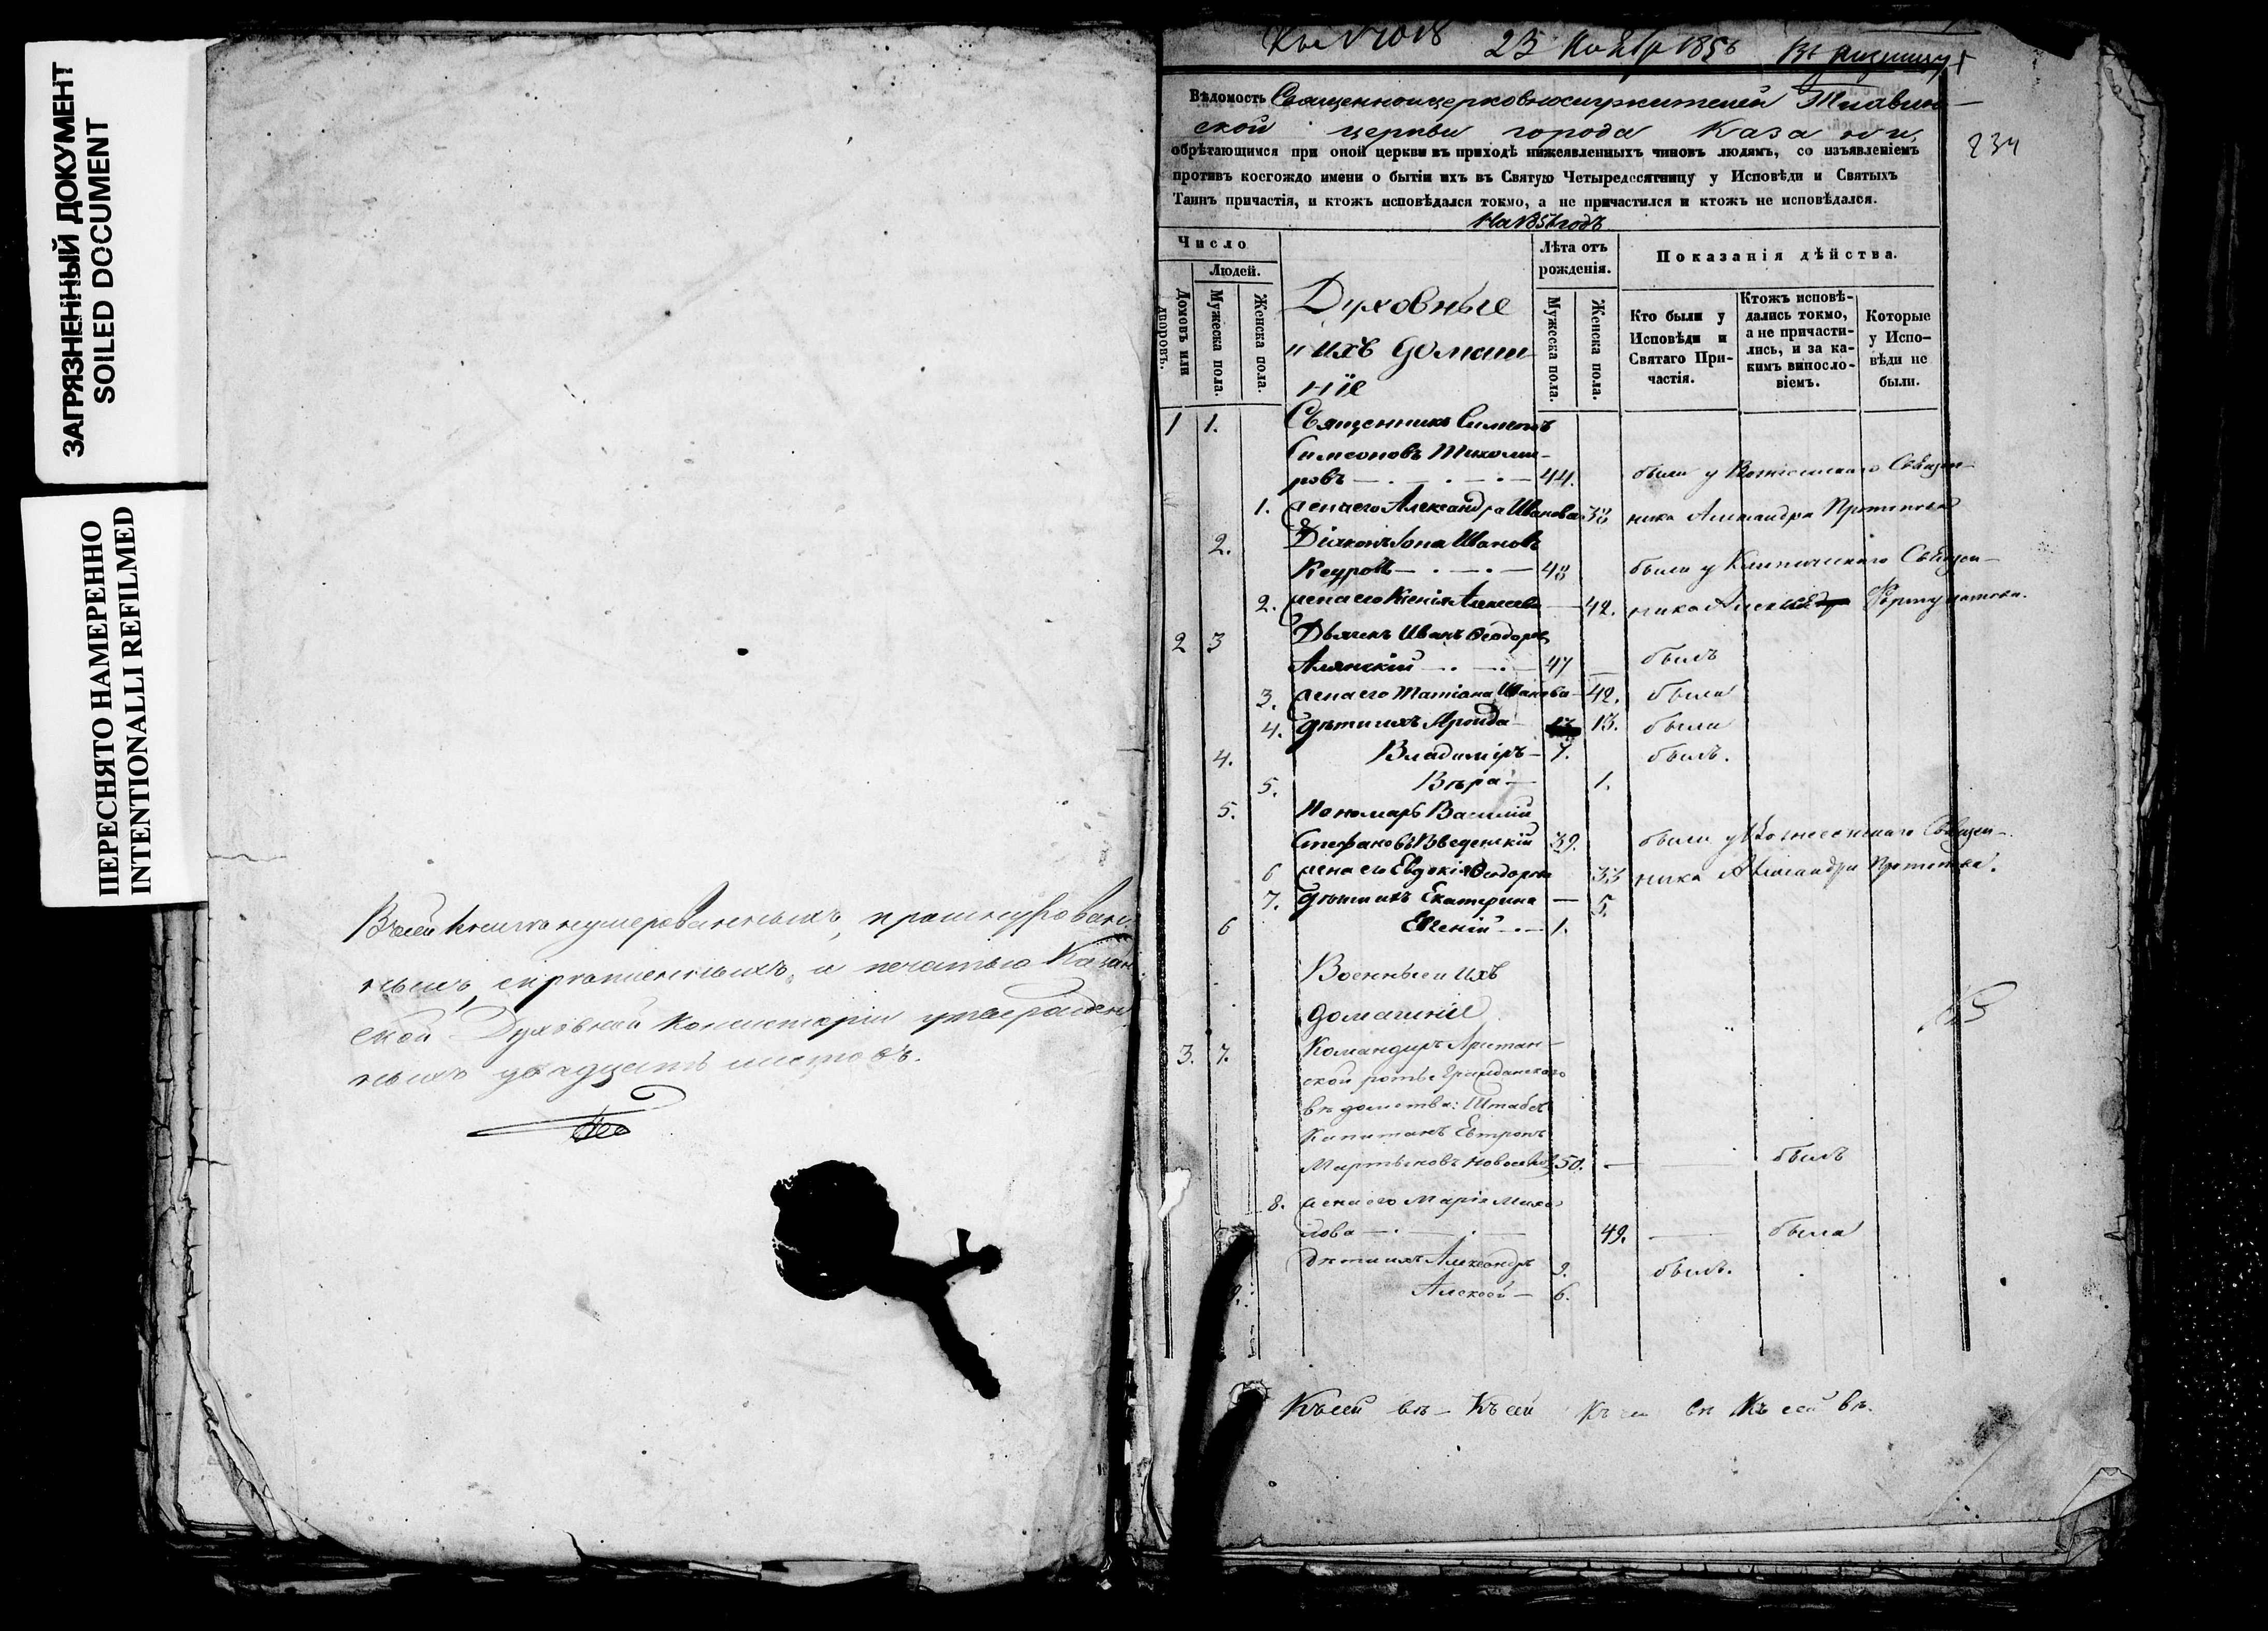 ЗАГРЯЗНЕННЫЙ ДОКУМЕНТ
SOILED DOCUMENT
ПЕРЕСНЯТО НАМЕРЕННО
INTENTIONALLI REFILMED
нумерованныхъ, прошнурован-
ныхъ, скрѣпленныхъ, и печатью Казан-
ской Духовной Консисторіи утвержден-
ныхъ двадцать листовъ.
23 1856
Вѣдомость Священноцерковнослужителей
ской церкви города Казани,
234
обрѣтающимся при оной церкви въ приходѣ нижеявленныхъ чиновъ людямъ, со изъявленіемъ
противъ коегождо имени о бытіи ихъ въ Святую Четыредесятницу у Исповѣди и Святыхъ
Таинъ причастія, и ктожъ исповѣдался токмо, а не причастился и ктожъ не исповѣдался.
На 1856 годъ
Число
Людей.
Домовъ или дворовъ.
Мужеска пола.
Женска пола.
Духовные
и ихъ домаш-
ніе
Лѣта отъ
рожденія.
Мужеска пола.
Женска пола.
Показанія дѣйства.
Кто были у
Исповѣди и
Святаго При-
частія.
Ктожъ исповѣ-
дались токмо,
а не причасти-
лись, и за ка-
кимъ виносло-
віемъ.
Которые
у Испо-
вѣди не
были.
1 1. Священникъ Симеонъ
Симеоновъ Тихоми-
ровъ 44. были у Вознесенскаго Священ-
1. жена его Александра Иванова 38 ника Александра
2. Діаконъ Іона Ивановъ
48 были у Священ-
2. жена его Ксенія Алексеева 42. ника
2 3 Дьячекъ Иванъ Ѳеодоровъ
47 былъ
3. жена его Татіана Иванова 42. была
4. дѣти ихъ 13. была
4. Владиміръ 7. былъ.
5. Вѣра 1.
5. Пономарь Василій
Стефановъ Введенскій 39. были у Вознесенскаго Священ-
6 жена его Евдокія Ѳеодорова 33 ника Александра
7. дѣти ихъ Екатерина 5.
6 Евгеній 1.
Военные и ихъ
домашніе
3. 7. Командиръ Арестан-
ской роты Гражданскаго
вѣдомства: Штабсъ
Капитанъ Евтропъ
Мартыновъ 50. былъ
8. жена его Марія Михай-
лова 49. была
дѣти ихъ Александръ 9. былъ.
9. Алексѣй 6.